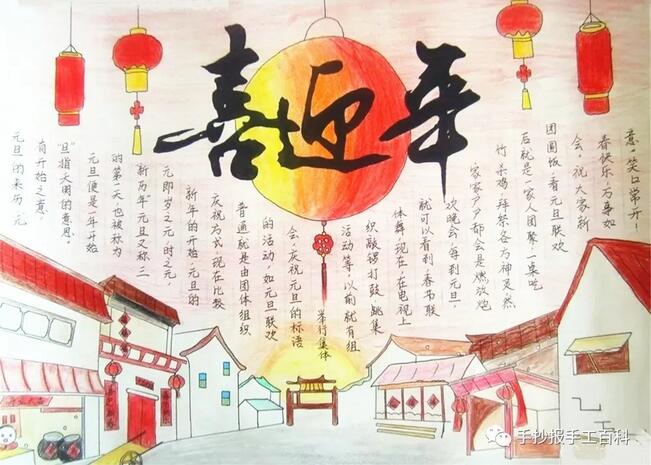 喜迎年
元旦的来历:元
有开始之意,
“旦”指天明的意思。
元旦便是一年开始
的第一天,也被称为
新历年,元旦又称三
元即岁之元,时之元,
新年的开始,元旦的
庆祝方式,现在比较
普通就是由团体组织
的活动,如元旦联欢
会,庆祝元旦的标语
举行集体
活动等,以前就有组
织敲锣打鼓,跳集
体舞,现在,在电视上
就可以看到,春节联
欢晚会,每到元旦,
家家户户都会是燃放炮
竹,杀鸡,拜祭各方神灵,然
后就是一家人团聚一桌吃
团圆饭,看元旦联欢
会,祝大家新
春快乐,万事如
意,笑口常开!
手抄报手工百科